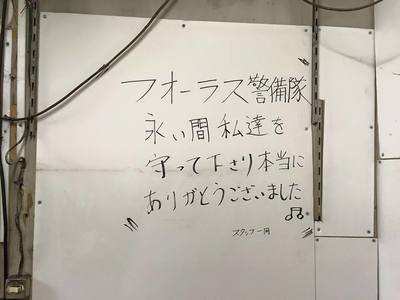 フォーラス警備隊
永い間私達を
守って下さり本当に
ありがとうございました
スタッフ一同